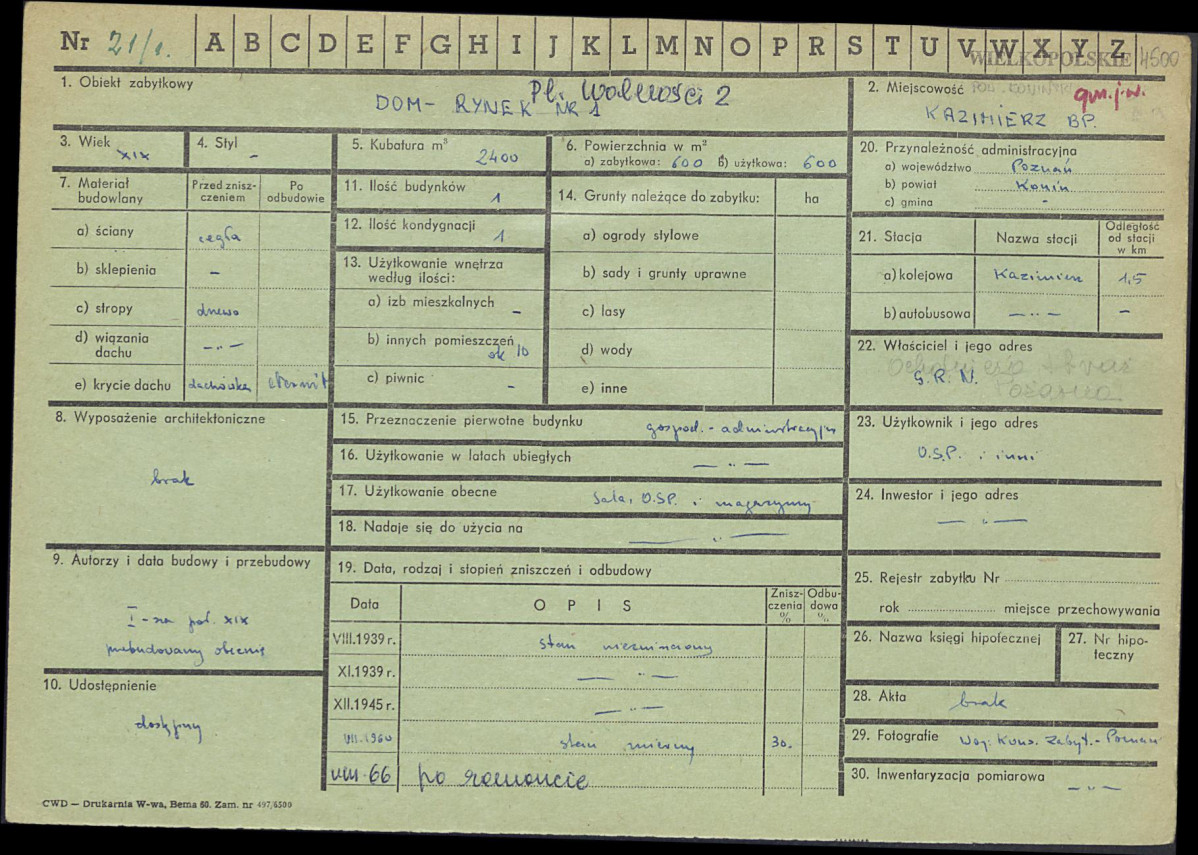 Nr 21/1. A B C D E F G H I J K L M N O P R S T U V W X Y Z WIELKOPOLSKIE 4500
1. Obiekt zabytkowy
Pl. Wolności 2
DOM - RYNEK NR 1
2. Miejscowość
gm. j.w.
KAZIMIERZ BP.
3. Wiek
XIX
4. Styl
-
5. Kubatura m³
2400
6. Powierzchnia w m²
a) zabytkowa: 600 b) użytkowa: 600
20. Przynależność administracyjna
a) województwo Poznań
b) powiat Konin
c) gmina -
7. Materiał budowlany
Przed zniszczeniem
Po odbudowie
a) ściany cegła
b) sklepienia -
c) stropy drewno
d) wiązania dachu -"-
e) krycie dachu dachówka eternit
11. Ilość budynków
1
12. Ilość kondygnacji
1
13. Użytkowanie wnętrza według ilości:
a) izb mieszkalnych -
b) innych pomieszczeń ok 10
c) piwnic -
14. Grunty należące do zabytku: ha
a) ogrody stylowe
b) sady i grunty uprawne
c) lasy
d) wody
e) inne
21. Stacja
Nazwa stacji
Odległość od stacji w km
a) kolejowa Kazimierz 1,5
b) autobusowa -"- -
22. Właściciel i jego adres
G.R.N.
8. Wyposażenie architektoniczne
brak
15. Przeznaczenie pierwotne budynku gospod. - administracyjne
16. Użytkowanie w latach ubiegłych -"-
17. Użytkowanie obecne Sala, O.SP. i magazyny
18. Nadaje się do użycia na -"-
23. Użytkownik i jego adres
O.S.P. i inni
24. Inwestor i jego adres
-"-
9. Autorzy i data budowy i przebudowy
I-sza poł. XIX
przebudowany obecnie
10. Udostępnienie
dostępny
19. Data, rodzaj i stopień zniszczeń i odbudowy
Data
OPIS
Zniszczenia %
Odbudowa %
VIII.1939 r. stan niezmieniony
XI.1939 r. -"-
XII.1945 r. -"-
VII.1960 stan zmienny 30.
VIII-66 po remoncie
25. Rejestr zabytku Nr
rok miejsce przechowywania
26. Nazwa księgi hipotecznej
27. Nr hipoteczny
28. Akta brak
29. Fotografie Woj. Kons. Zabyt. - Poznań
30. Inwentaryzacja pomiarowa
-"-
CWD — Drukarnia W-wa, Bema 60. Zam. nr 497/6500